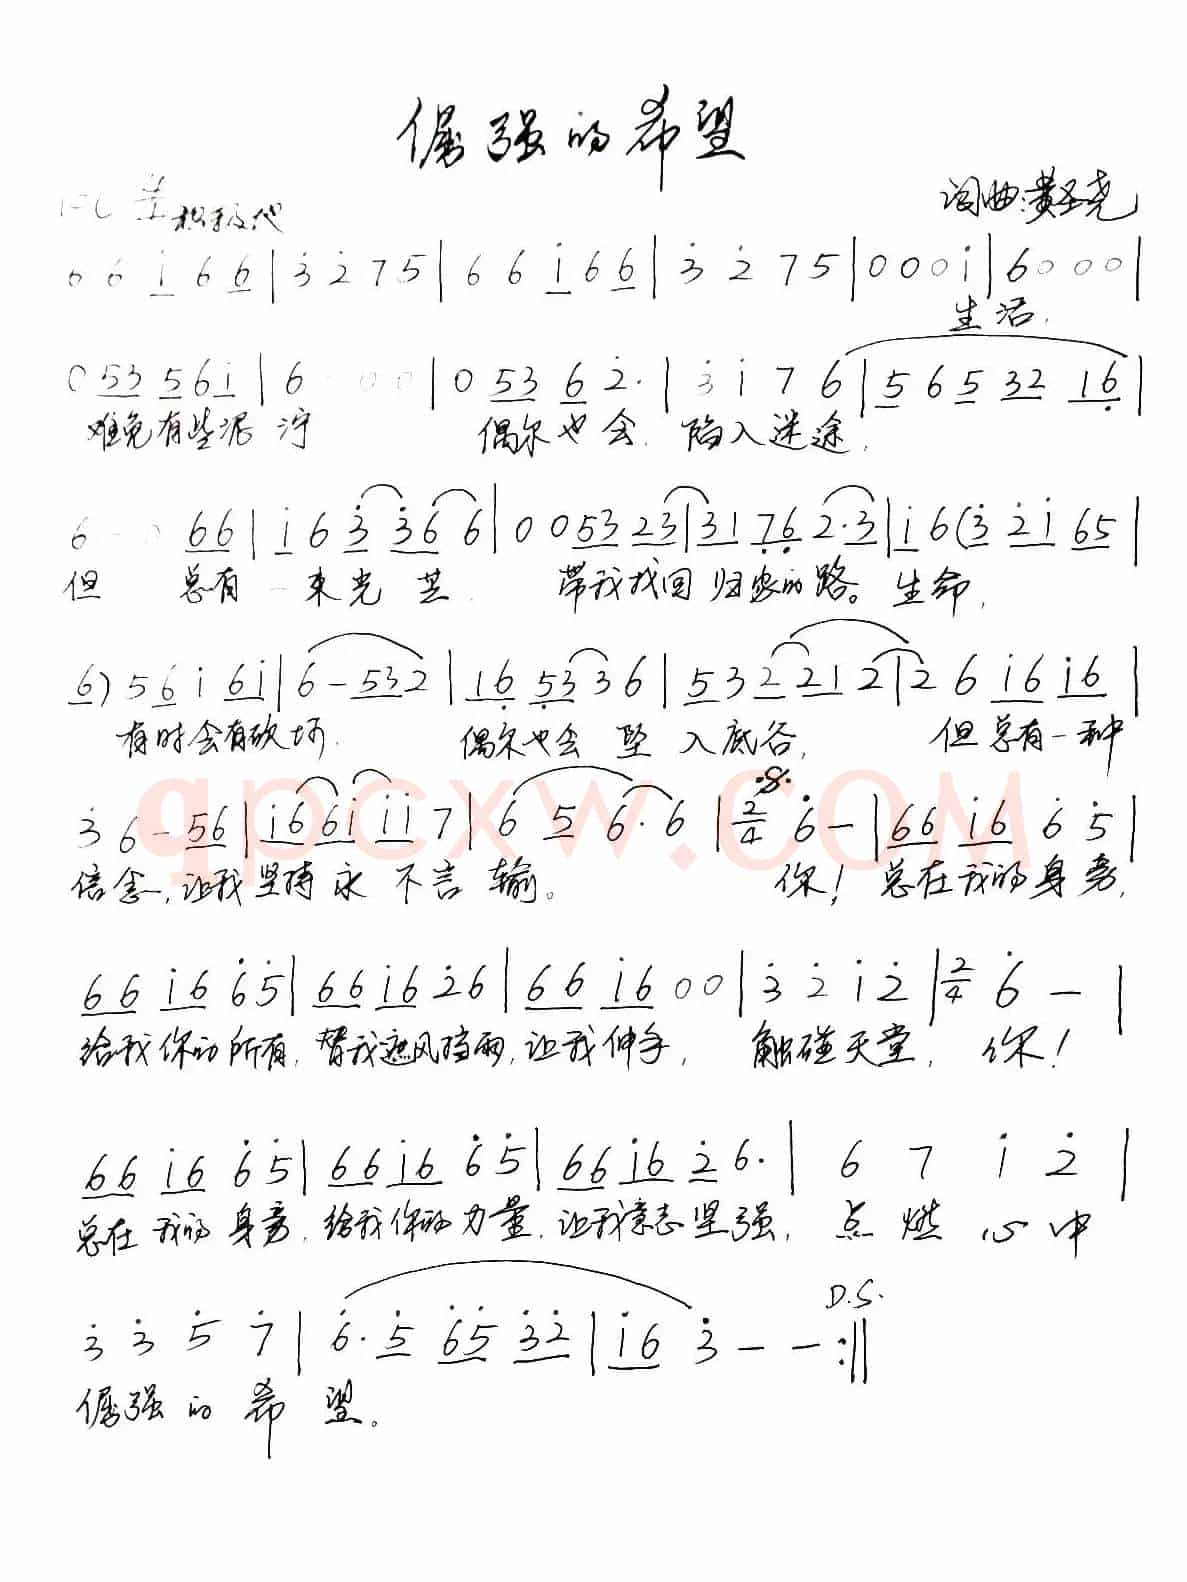 倔强的希望
1=C 4/4 积极地
词曲:黄圣尧
6 6 i 6 6 | 3 2 7 5 | 6 6 i 6 6 | 3 2 7 5 | 0 0 0 i | 6 0 0 0 |
生活,
0 53 561 | 6 - 0 0 | 0 53 6 2· | 3 i 7 6 | 5 6 5 32 16 |
难免有些泥泞 偶尔也会 陷入迷途,
6 - 0 66 | i 6 3 36 6 | 0 0 53 23 | 31 76 2·3 | i 6 (3 2i 65 |
但 总有一束光芒 带我找回归家的路。生命,
6) 56 i 6i | 6 - 532 | 16 53 36 | 53 2 21 2 | 2 6 i6 i6 |
有时会有砍坷 偶尔也会坠入底谷, 但总有一种
3 6 - 56 | i6 6i ii 7 | 6 5 6· 6 | 2/4 6 - | 66 i6 6 5 |
信念,让我坚持永不言输。 你!总在我的身旁,
66 i6 65 | 66 i6 26 | 66 i6 00 | 3 2 i 2 | 2/4 6 - |
给我你的所有,替我遮风挡雨,让我伸手, 触碰天堂, 你!
66 i6 65 | 66 i6 65 | 66 i6 2 6· | 6 7 i 2 |
总在我的身旁,给我你的力量,让我意志坚强,点燃心中
D.S.
3 3 5 7 | 6· 5 65 32 | i6 3 - - :||
倔强的希望。
qpcxw.COM